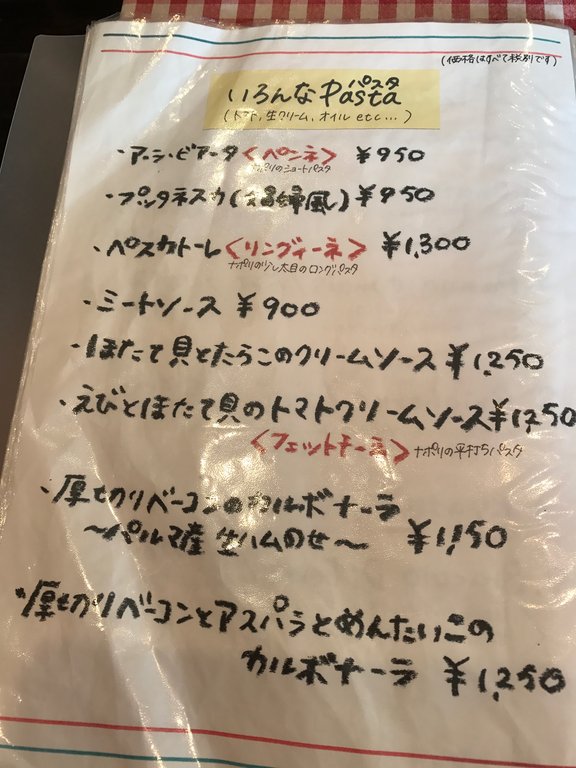 (価格はすべて税別です)
パスタ
いろんなPasta
(トマト、生クリーム、オイル etc...)
・アーラ・ビアータ<ペンネ> ¥950
ナポリのショートパスタ
・プッタネスカ(娼婦風) ¥950
・ペスカトーレ<リングィーネ> ¥1,300
ナポリの少し太目のロングパスタ
・ミートソース ¥900
・ほたて貝とたらこのクリームソース ¥1,250
・えびとほたて貝のトマトクリームソース ¥1,250
<フェットチーネ> ナポリの平打ちパスタ
・厚切りベーコンのカルボナーラ
～パルマ産 生ハムのせ～ ¥1,150
・厚切りベーコンとアスパラとめんたいこの
カルボナーラ ¥1,250